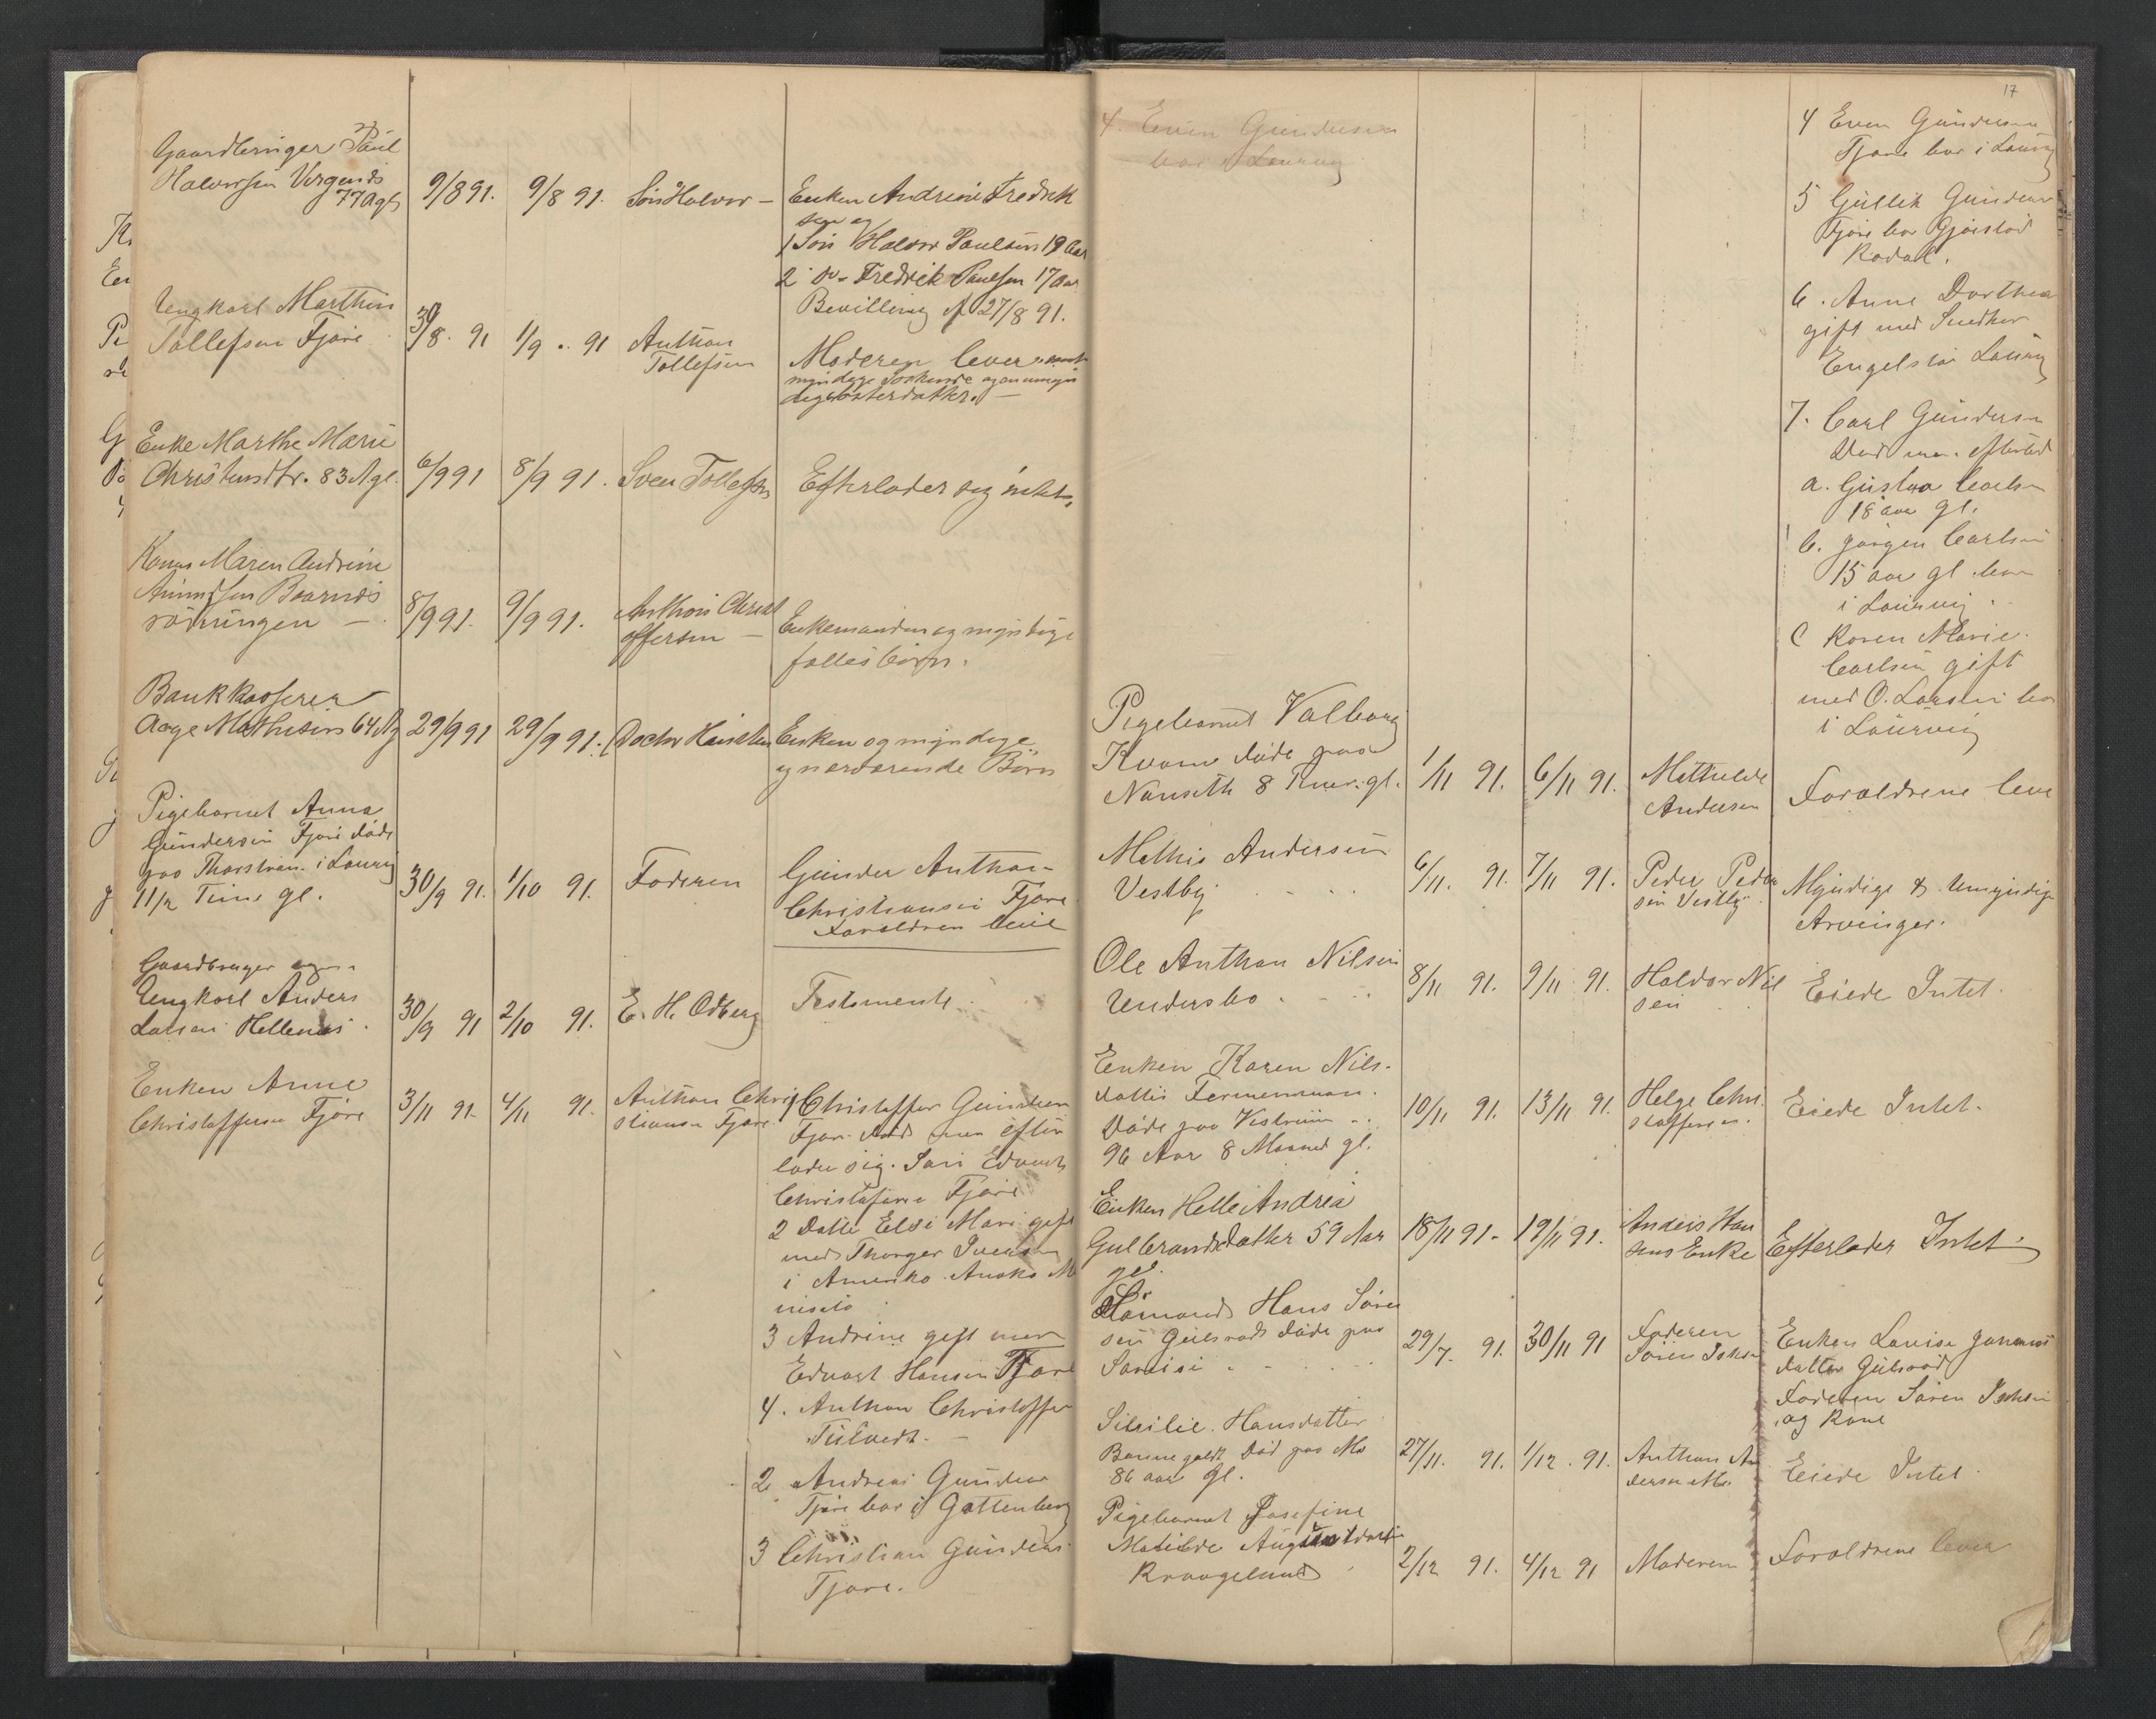 Gaardbruger Paul
Halvorsen Vergends
77 Agl
9/8 91.
9/8 91.
Søn Halvor –
Enken Andrine Fredrik
sen og
1 Søn Halvor Paulsen 19 Aar
2 do – Fredrik Paulsen 17 Aar
Bevilling af 27/8 91.
Ungkarl Marthin
Tollefsen Fjære
30/8. 91
1/9. 91
Anthon
Tollefsen
Moderen lever samt
myndige Søskende og en umyn
dig Søsterdatter. –
Enke Marthe Marie
Christensdtr. 83 Agl.
6/9 91
8/9 91.
Sven Tollefsen
Efterlader sig intet.
Konen Maren Andrine
Amundsen Baarnæs
rødningen –
8/9 91.
9/9 91.
Anthon Christ
offersen –
Enkemanden og myndige
fællesbørn.
Bankkasserer
Aage Mathisen 64 Ag
29/9 91
29/9 91.
Doctor
Enken og myndige
og nærværende Børn
Pigebarnet Anna
Gundersen Fjære døde
paa Thorstven. i Laurvig
11/2 Time gl.
30/9 91.
1/10 91.
Faderen
Gunder Anthon
Christiansen Fjære
Forældren leve
Gaardbruger og
Ungkarl Anders
Larsen Hellenæs.
30/9 91
2/10 91.
E. H. Odberg
Testamente.
Enken Anne
Christoffersen Fjære
3/11 91.
4/11 91.
Anthon Chri
stiansen Fjære.
1 Christoffer Gundersen
Fjære død men efter
lader sig. Søn Edvard
Christofersen Fjære
2 Datter Else Marie gift
med Thorger Iversen
i Amerika Anoka M
inesota
3 Andrine gift med
Edvart Hansen Fjære
4. Anthon Christoffer
Tulvedt. –
2 Andreas Gundersen
Fjære bor i Gottenborg
3 Christian Gundersen
Fjære.
17
4. Even Gundersen
bor i Laurvig
4 Even Gundersen
Fjære bor i Laurvig
5 Gullik Gundersen
Fjære bor Gjærstad
6. Anne Dorthea
gift med Snedker
Engelstø Laurvig
7. Carl Gundersen
Død men efterlod
a. Gustav Carlsen
18 aar gl.
b. Jørgen Carlsen
15 aar gl bor
i Laurvig.
c Karen Marie
Carlsen gift
med O. Larsen bor
i Laurvig
Pigebarnet Valborg
Kvame døde paa
Nanseth 8 gl.
1/11 91.
6/11 91.
Mathilde
Andersen
Forældrene leve
Mathis Andersen
Vestby
6/11. 91.
7/11 91.
Peder Peder
sen Vestby
Myndige & Umyndige
Arvinger.
Ole Anthon Nilsen
Undersbo
8/11 91.
9/11 91.
Haldor Nil
sen
Eiede Intet.
Enken Karen Nils-
datter
Døde paa
96 Aar 8 Maaned gl.
10/11 91.
13/11 91.
Helge Chri
stoffersen.
Eiede Intet.
Enken Helle Andrea
Gulbrandsdatter 59 Aar
gl.
18/11 91.
19/11 91.
Anders Han
sens Enke
Efterlader Intet
Sømand Hans Søren
sen Gulsrød døde paa
29/7. 91.
30/11 91
Faderen
Søren
Enken Lovise
datter Gulsrød
Faderen Søren
og Kone
Sisilie. Hansdatter
død paa Mo
86 aar gl.
27/11. 91.
1/12. 91.
Anthon An
dersen Mo.
Eiede Intet.
Pigebarnet Josefine
Matilde
Kraagelund
2/12 91.
4/12 91
Moderen
Forældrene lever